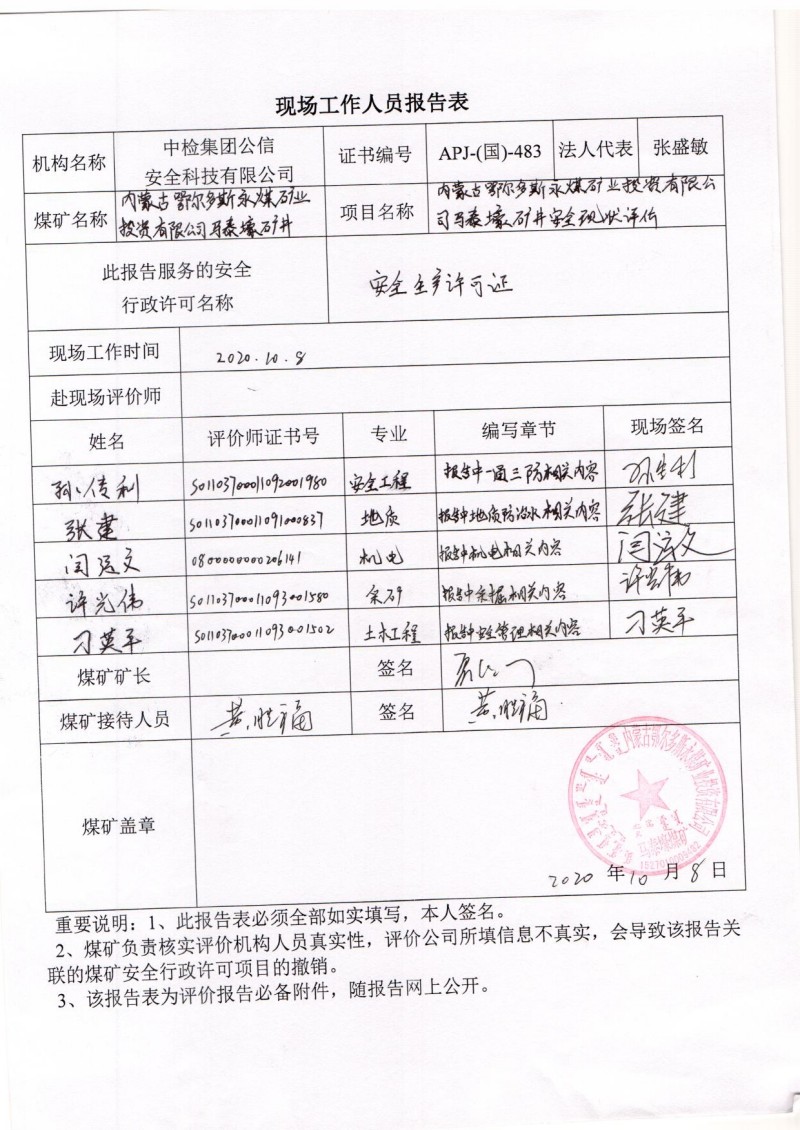 现场工作人员报告表
机构名称 中检集团公信安全科技有限公司 证书编号 APJ-(国)-483 法人代表 张盛敏
煤矿名称 内蒙古鄂尔多斯永煤矿业投资有限公司马泰壕矿井 项目名称 内蒙古鄂尔多斯永煤矿业投资有限公司马泰壕矿井安全现状评价
此报告服务的安全
行政许可名称 安全生产许可证
现场工作时间 2020.10.8
赴现场评价师
姓名 评价师证书号 专业 编写章节 现场签名
孙传利 S01103700011092001980 安全工程 报告中一通三防相关内容 孙传利
张建 S01103700011091000837 地质 报告中地质防治水相关内容 张建
闫运文 0800000000206141 机电 报告中机电相关内容 闫运文
许光伟 S01103700011093001580 采矿 报告中采掘相关内容 许光伟
刁英平 S01103700011093001502 土木工程 报告中安全管理相关内容 刁英平
煤矿矿长 签名
煤矿接待人员 黄胜福 签名 黄胜福
煤矿盖章
内蒙古鄂尔多斯永煤矿业投资有限公司
马泰壕煤矿
2020 年 10 月 8 日
重要说明：1、此报告表必须全部如实填写，本人签名。
2、煤矿负责核实评价机构人员真实性，评价公司所填信息不真实，会导致该报告关
联的煤矿安全行政许可项目的撤销。
3、该报告表为评价报告必备附件，随报告网上公开。